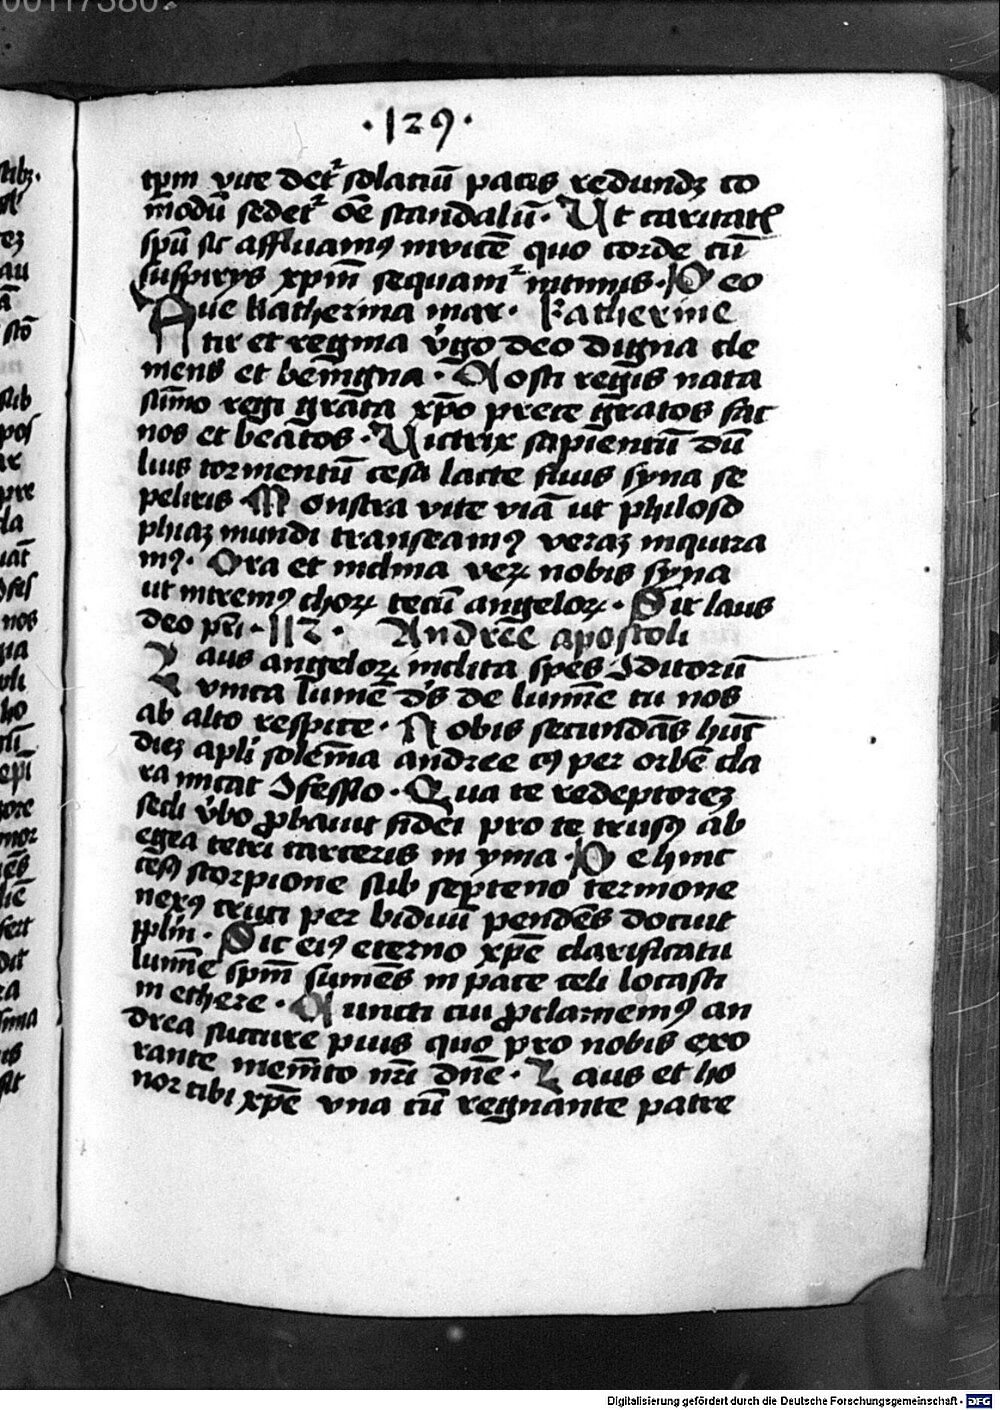 ·129·
tp̄m vite det᷒ solaciū pacis redundꝫ co
modū sedet᷒ oē scandalū· Ut caritatꝭ
spū sic affluamꝰ invicē quo corde cū
suspirijs xp̄m sequam᷒ intimis· Deo
Ave Katherina mar· Katherine
tir et regina v̓go deo digna cle
mens et benigna· Nosti regis nata
sūmo regi grata xp̄o prece gratos fac
nos et beatos· Victrix sapientū du
lius tormentū cesa lacte fluis syna se
peliris· Monstra vite viā ut philoso
phiaꝫ mundi transeamꝰ veraꝫ inquira
mꝰ· Ora et inclina veꝝ nobis syna
ut intremꝰ choꝝ tecū angeloꝝ· Sit laus
deo pr̄i· 112· Andree apostoli
Laus angeloꝝ inclita spes ꝯditorū
unica lumē de lumīe tu nos
ab alto respice· Nobis secundās hūc
dieꝫ apl̄i solēna andree cꝰ per orbē cla
ra micat ꝯfessio· Qua te redēptoreꝫ
secli v̓bo ꝓbavit fidei pro te trusꝰ ab
egea tetri carceris in yma· Dehinc
cesꝰ scorpione sub septeno termione
nexꝰ cruci per biduū pendēs docuit
pplm̄· Sit eiꝰ eterno xp̄e clarificatu
lumīe sp̄m sumēs in pace celi locasti
in ethere· Cuncti cui ꝓclamemꝰ an
drea succure pius quo pro nobis exo
rante memēto nr̄i dn̄e· Laus et ho
nor tibi xp̄e una cū regnante patre
Digitalisierung gefördert durch die Deutsche Forschungsgemeinschaft - DFG